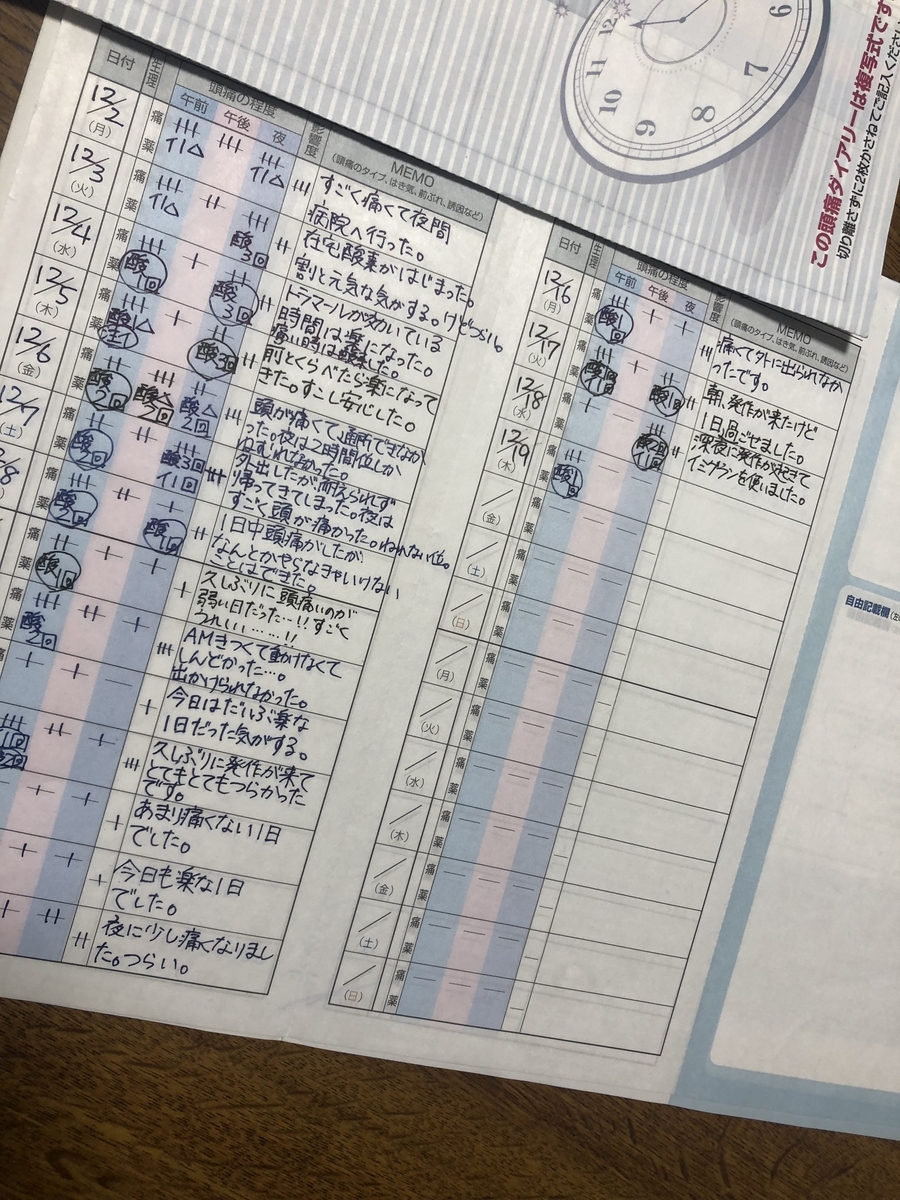 この頭痛ダイアリーは複写式です
切り離さずに2枚かさねてご記入ください
12
11
10
9
8
7
6
日付
生理
頭痛の程度
午前
午後
夜
影響度
MEMO
(頭痛のタイプ、はき気、前ぶれ、誘因など)
12/2
(月)
痛
薬
すごく痛くて夜間
病院へ行った。
12/3
(火)
痛
薬
在宅酸素がはじまった。
割と元気な気がする。けどつらい。
12/4
(水)
痛
薬
酸
3回
トラマールが効いている
時間は楽になった。
12/5
(木)
痛
薬
酸
1回
酸
3回
前とくらべたら楽になって
きた。すこし安心した。
12/6
(金)
痛
薬
酸
3回
頭が痛くて通所できなか
った。夜は2時間位しか
ねむれなかった。
12/7
(土)
痛
薬
酸
2回
酸
2回
酸
2回
外出したが耐えられず
帰ってきてしまった。夜は
すごく頭が痛かった。ねれない位。
痛
薬
酸
酸3回
イ1回
1日中頭痛がしたが
なんとかやらなきゃいけない
ことはできた。
酸
酸
1回
久しぶりに頭痛いのが
弱い日だった…!!すごく
うれしい……!!
酸
1回
AMきつくて動けなくて
しんどかった…。
出かけられなかった。
酸
2回
今日はだいぶ楽な
1日だった気がする。
久しぶりに発作が来て
とてもとてもつらかった
です。
あまり痛くない1日
でした。
今日も楽な1日
でした。
夜に少し痛くなりまし
た。つらい。
日付
生理
頭痛の程度
午前
午後
夜
影響度
MEMO
(頭痛のタイプ、はき気、前ぶれ、誘因など)
12/16
(月)
痛
薬
酸
1回
痛くて外に出られなか
ったです。
12/17
(火)
痛
薬
酸
酸1回
朝、発作が来たけど
1日過ごせました。
12/18
(水)
痛
薬
深夜に発作が起きて
イミグランを使いました。
12/19
(木)
痛
薬
酸
1回
(金)
痛
薬
(土)
痛
薬
(日)
痛
薬
(月)
痛
薬
(火)
痛
薬
(水)
痛
薬
(木)
痛
薬
(金)
痛
薬
(土)
痛
薬
(日)
痛
薬
自由記載欄